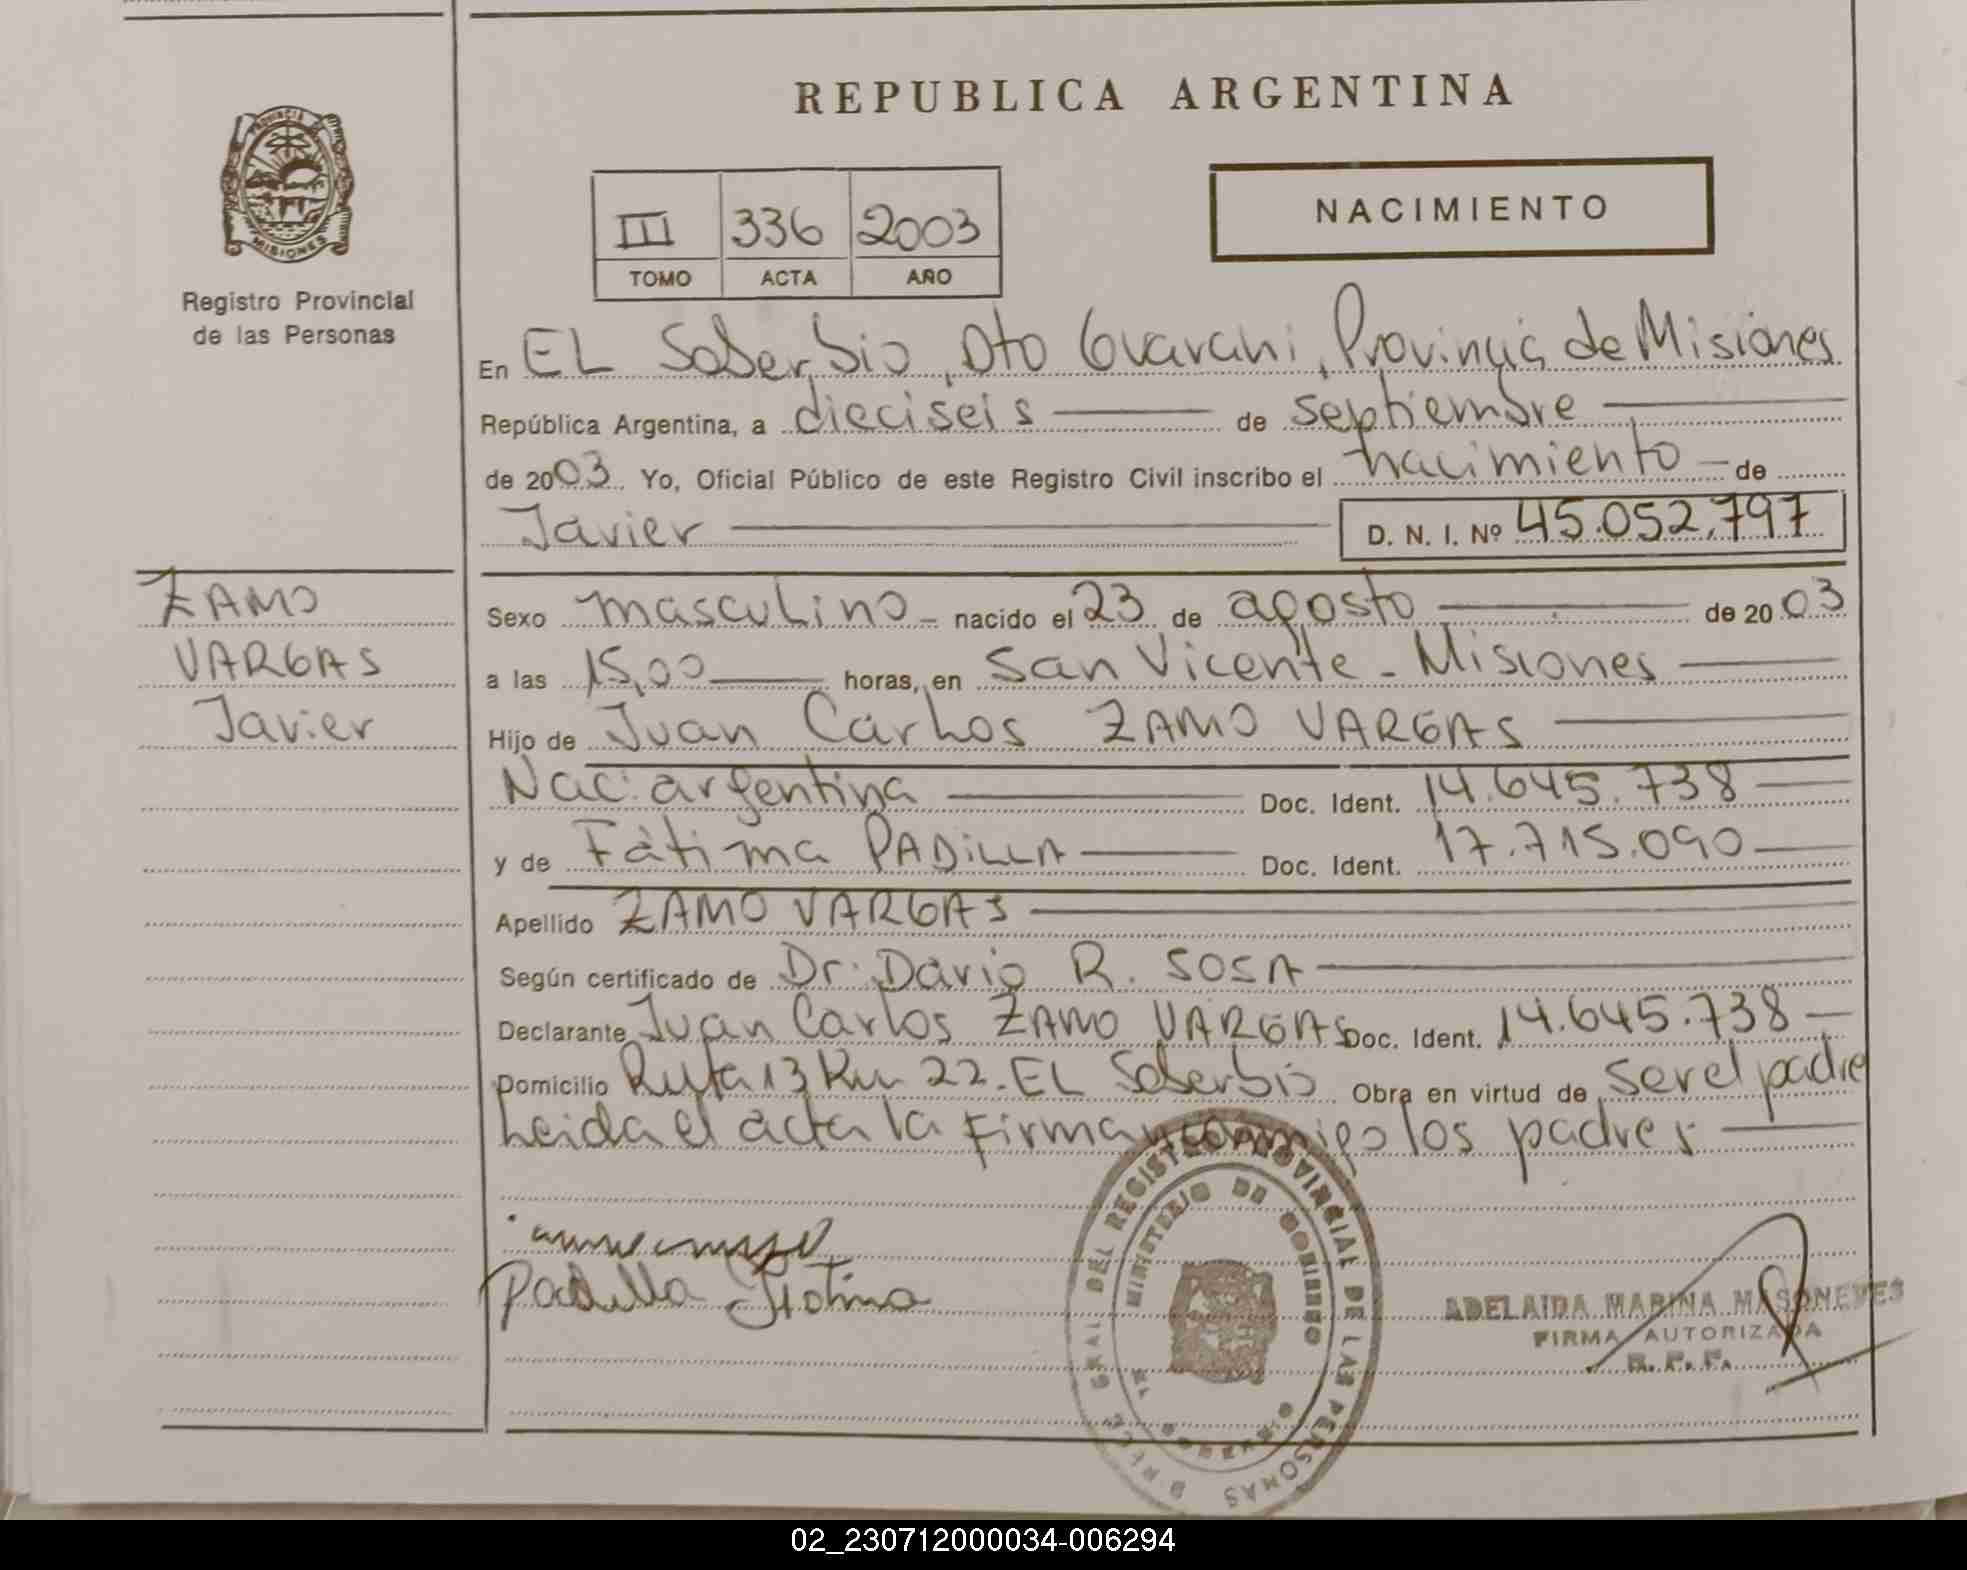 REPUBLICA ARGENTINA
PROVINCIA DE
MISIONES
Registro Provincial
de las Personas
III 336 2003
TOMO ACTA AÑO
NACIMIENTO
En EL Soberbio, Dto Guarani, Provincia de Misiones
República Argentina, a dieciseis de septiembre
de 2003 Yo, Oficial Público de este Registro Civil inscribo el nacimiento de
Javier D. N. I. Nº 45.052.797
ZAMO
VARGAS
Javier
Sexo masculino nacido el 23 de agosto de 2003
a las 15,00 horas, en San Vicente - Misiones
Hijo de Juan Carlos ZAMO VARGAS
Nac: argentina Doc. Ident. 14.645.738
y de Fátima PADILLA Doc. Ident. 17.715.090
Apellido ZAMO VARGAS
Según certificado de Dr. Dario R. SOSA
Declarante Juan Carlos ZAMO VARGAS Doc. Ident. 14.645.738
Domicilio Ruta 13 Km 22. EL Soberbio Obra en virtud de ser el padre
Leida el acta la firman conmigo los padres
Padilla Fatima
GRAL DEL REGISTRO PROVINCIAL DE LAS PERSONAS
MINISTERIO DE GOBIERNO
ADELAIDA MARINA
FIRMA AUTORIZADA
02_230712000034-006294